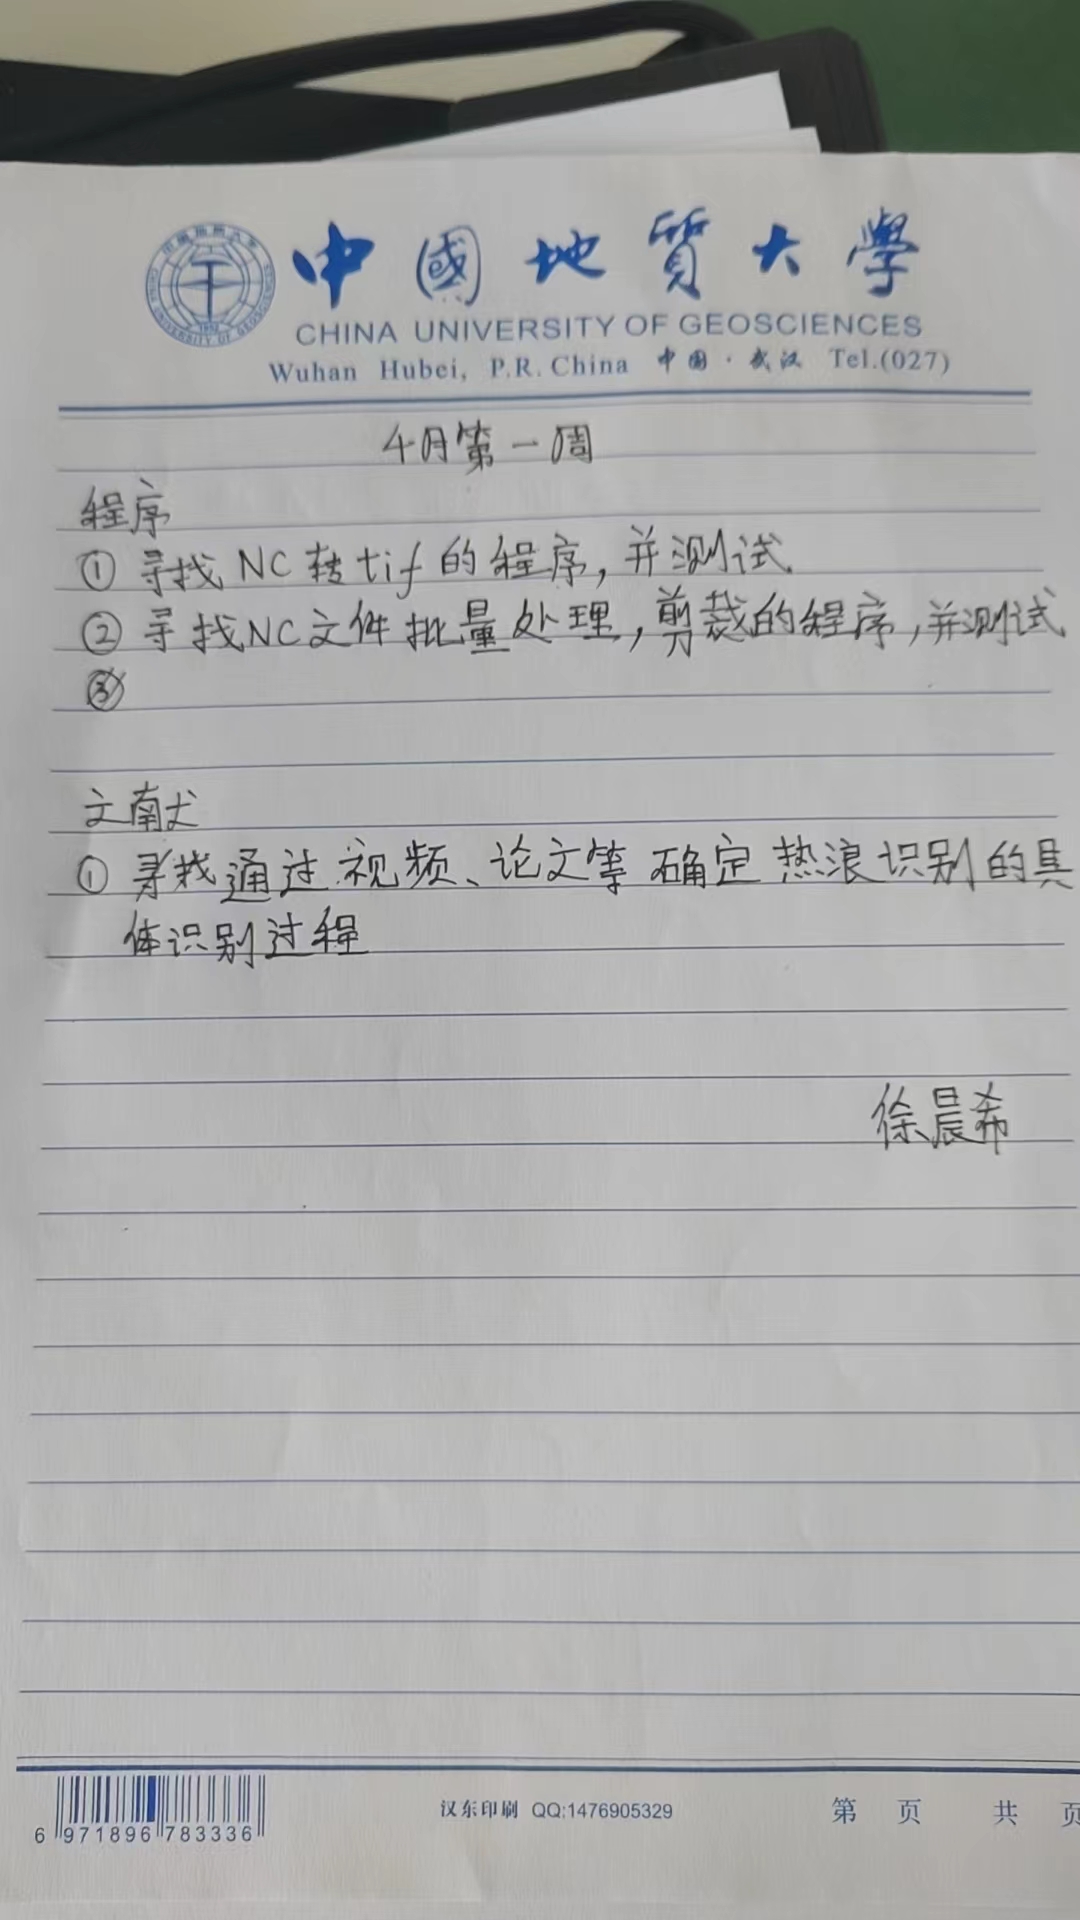 中國地質大學
CHINA UNIVERSITY OF GEOSCIENCES
Wuhan Hubei, P.R. China 中国·武汉 Tel.(027)
4月第一周
程序
① 寻找NC转tif的程序,并测试
② 寻找NC文件批量处理,剪裁的程序,并测试
③
文献
① 寻找通过视频、论文等确定热浪识别的具
体识别过程
徐晨希
汉东印刷 QQ:1476905329
第 页 共 页
6 971896 783336